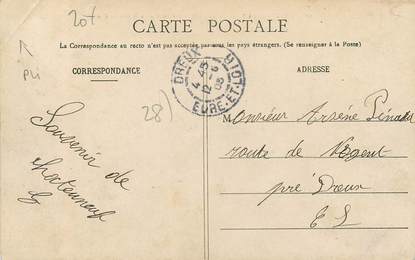 20f
CARTE POSTALE
La Correspondance au recto n'est pas acceptée par tous les pays étrangers. (Se renseigner à la Poste)
pli
CORRESPONDANCE
ADRESSE
DREUX
4-45
12-6
05
EURE-ET-LOIR
28)
Souvenir de
Monsieur Arsène
route de Nogent
pré Dreux
E L